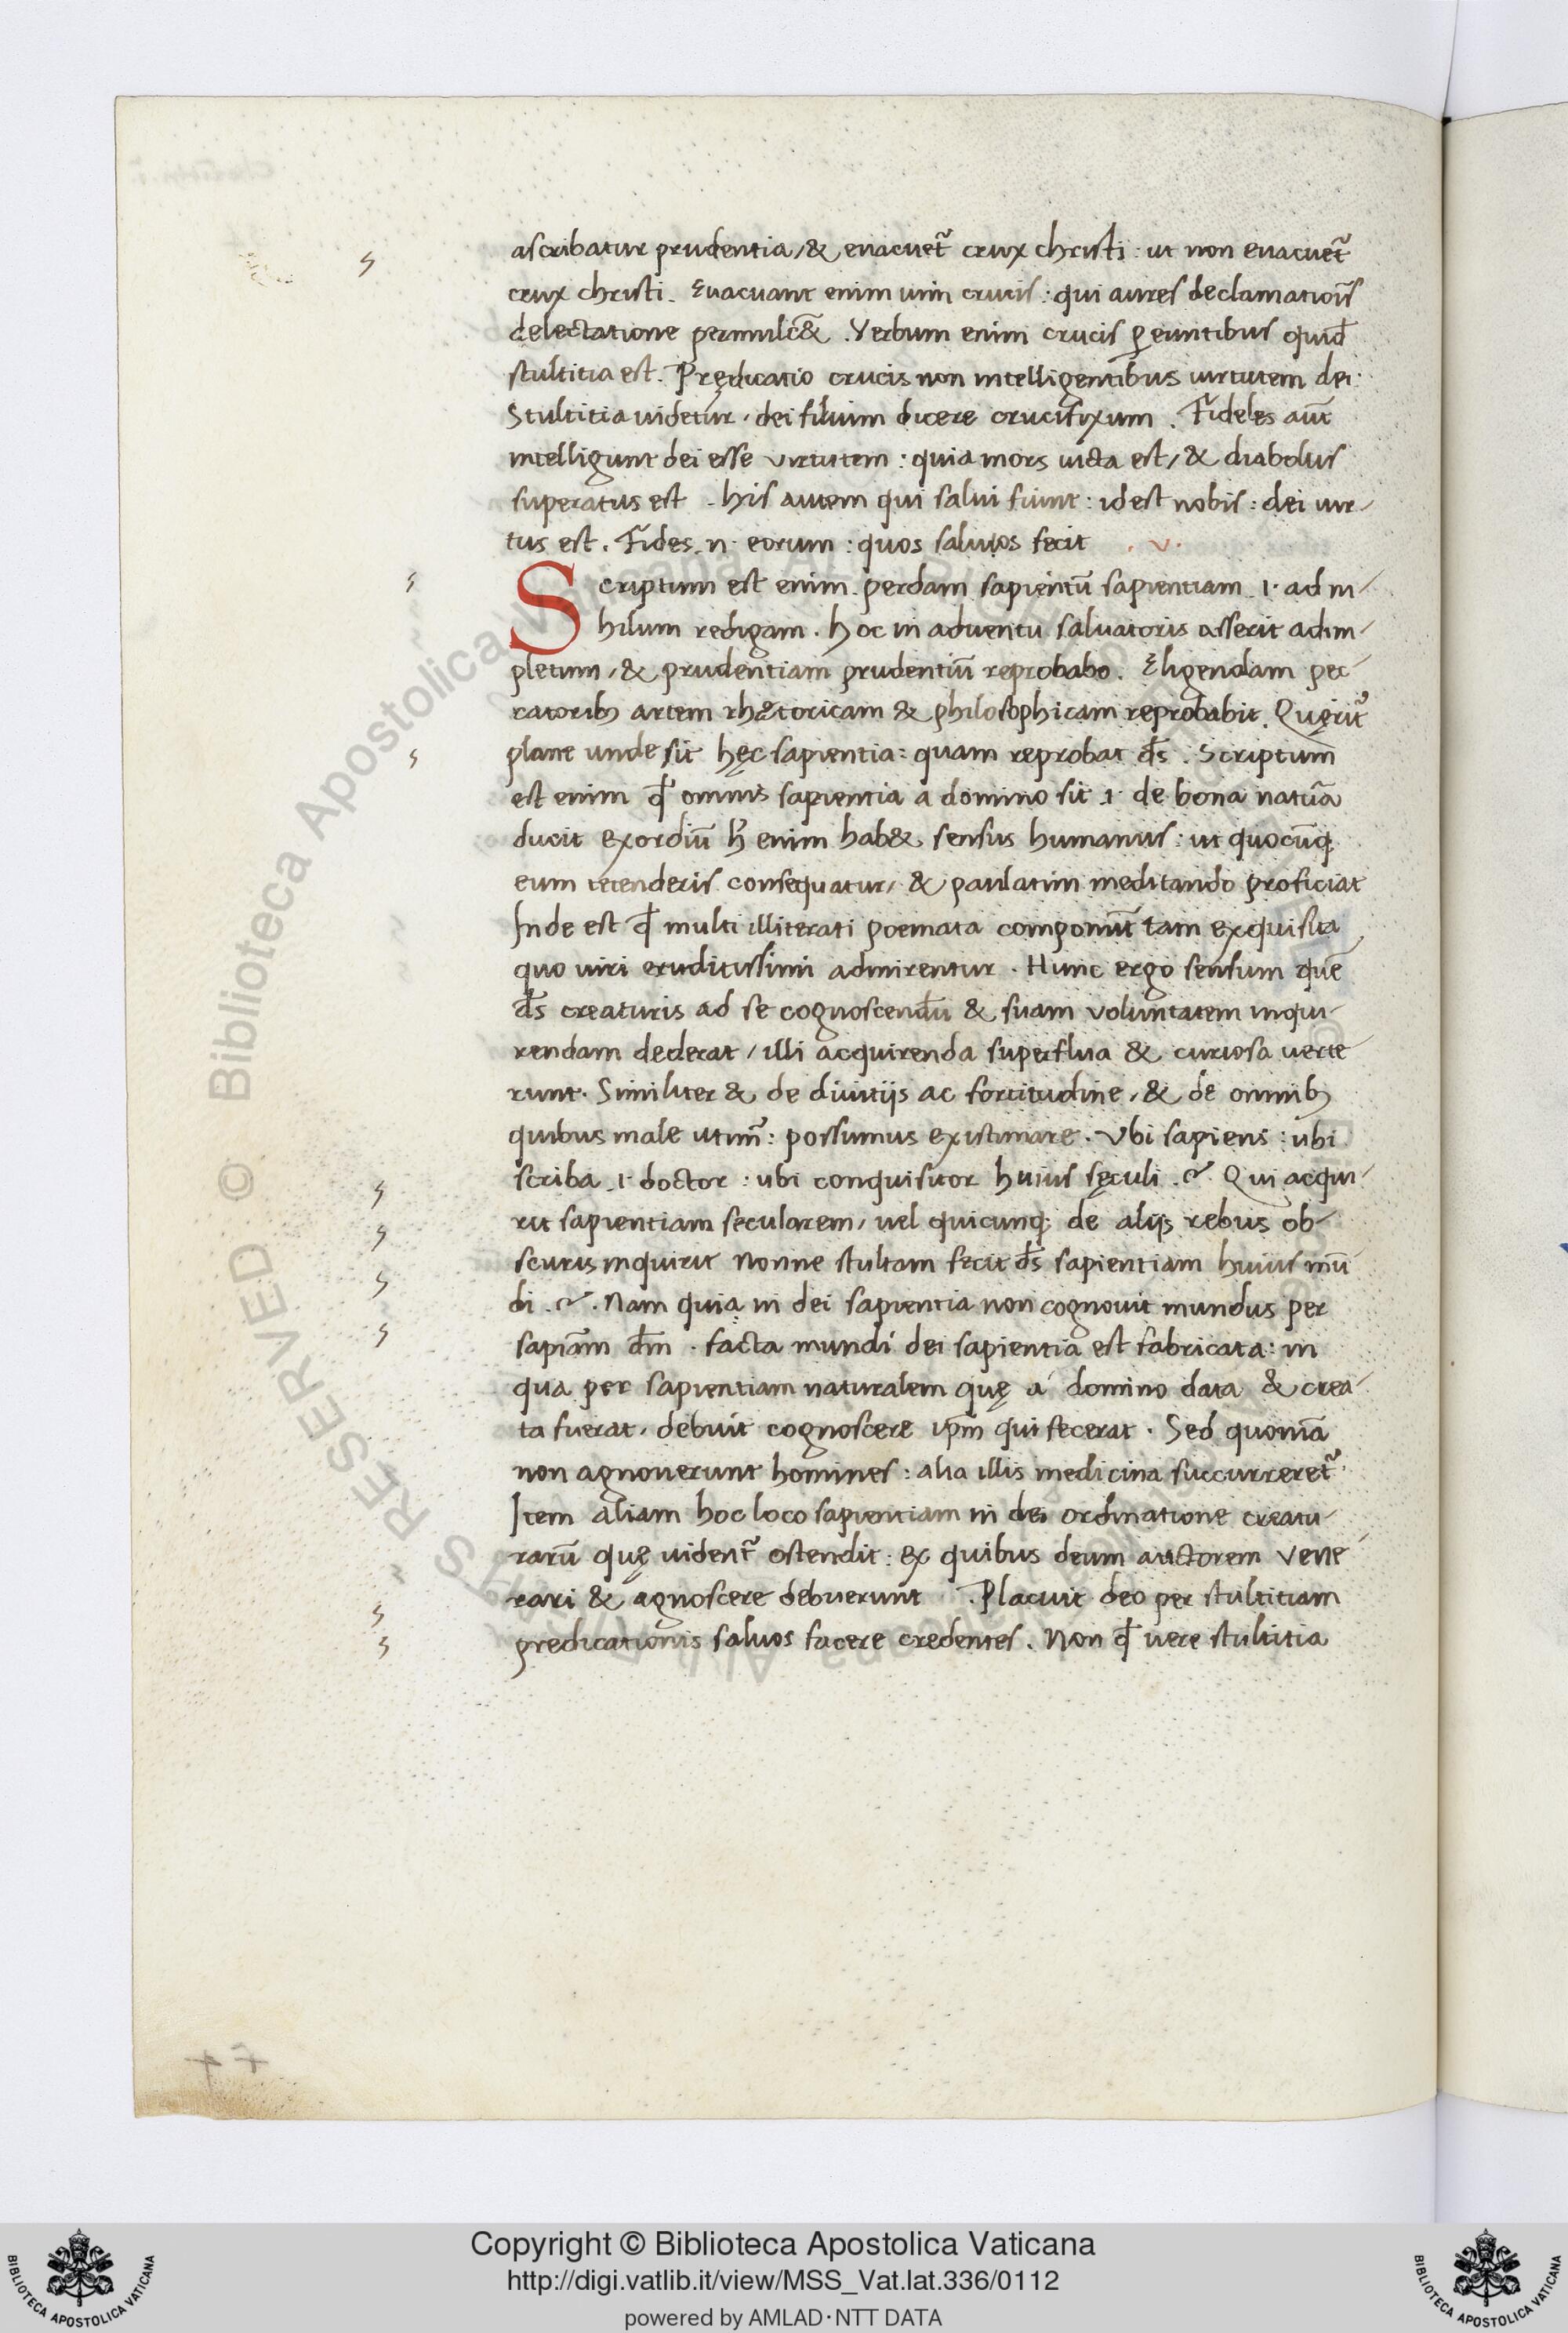 ascribatur prudentia, & euacuet᷑ crux christi: ut non euacuet᷑
crux christi. Euacuant enim uim crucis: qui aures declamatiōīs
delectatione permulcē&. Verbum enim crucis ꝑeuntibus quid̄
stultitia est. Prędicatio crucis non intelligentibus uirtutem dei:
Stultitia uidetur, dei filium dicere crucifixum. Fideles aūt
intelligunt dei esse virtutem: quia mors uicta est, & diabolus
superatus est. his autem qui salui fiunt: id est nobis: dei uir-
tus est. Fides .n. eorum: quos saluos fecit .v.
Scriptum est enim perdam sapientū sapientiam .i. ad ni-
hilum redigam. hoc in aduentu saluatoris asserit adim-
pletum, & prudentiam prudentiū reprobabo. Eligendam pec-
catoribꝫ artem rhętoricam & philosophicam reprobabit. Quęrit᷑
plane unde sit hęc sapientia: quam reprobat ds̄. Scriptum
est enim qd̄ omnis sapientia a domino sit .i. de bona natūa
ducit exordiū h̄ enim hab& sensus humanus: ut quocūqꝫ
eum tetenderis consequatur, & paulatim meditando proficiat
Inde est qd̄ multi illiterati poemata componūt tam exquisita
quo uiri eruditissimi admirentur. Hunc ergo sensum quē
ds̄ creaturis ad se cognoscendū & suam voluntatem inqui-
rendam dederat, illi acquirenda superflua & curiosa uerte
runt. Similiter & de diuitijs ac fortitudine, & de omnibꝫ
quibus male utimᷣ: possumus existimare. Vbi sapiens: ubi
scriba .i. doctor: ubi conquisitor huius sęculi. &. Qui acqui-
rit sapientiam secularem, uel quicunqꝫ de alijs rebus ob-
scuris inquirit Nonne stultam fecit ds̄ sapientiam huius mū
di. &. Nam quia in dei sapientia non cognouit mundus per
sapiām dm̄. facta mundi dei sapientia est fabricata: in
qua per sapientiam naturalem quę a domino data & crea-
ta fuerat, debuit cognoscere ip̄m qui fecerat. Sed quoniā
non agnouerunt homines: alia illis medicina succurreret᷑.
Item aliam hoc loco sapientiam in dei ordinatione creatu-
rarū quę uident᷑ ostendit: ex quibus deum auctorem vene-
rari & agnoscere debuerunt. Placuit deo per stultitiam
predicationis saluos facere credentes. Non qd̄ uere stultitia
Copyright © Biblioteca Apostolica Vaticana
http://digi.vatlib.it/view/MSS_Vat.lat.336/0112
powered by AMLAD·NTT DATA
BIBLIOTECA APOSTOLICA VATICANA
BIBLIOTECA APOSTOLICA VATICANA